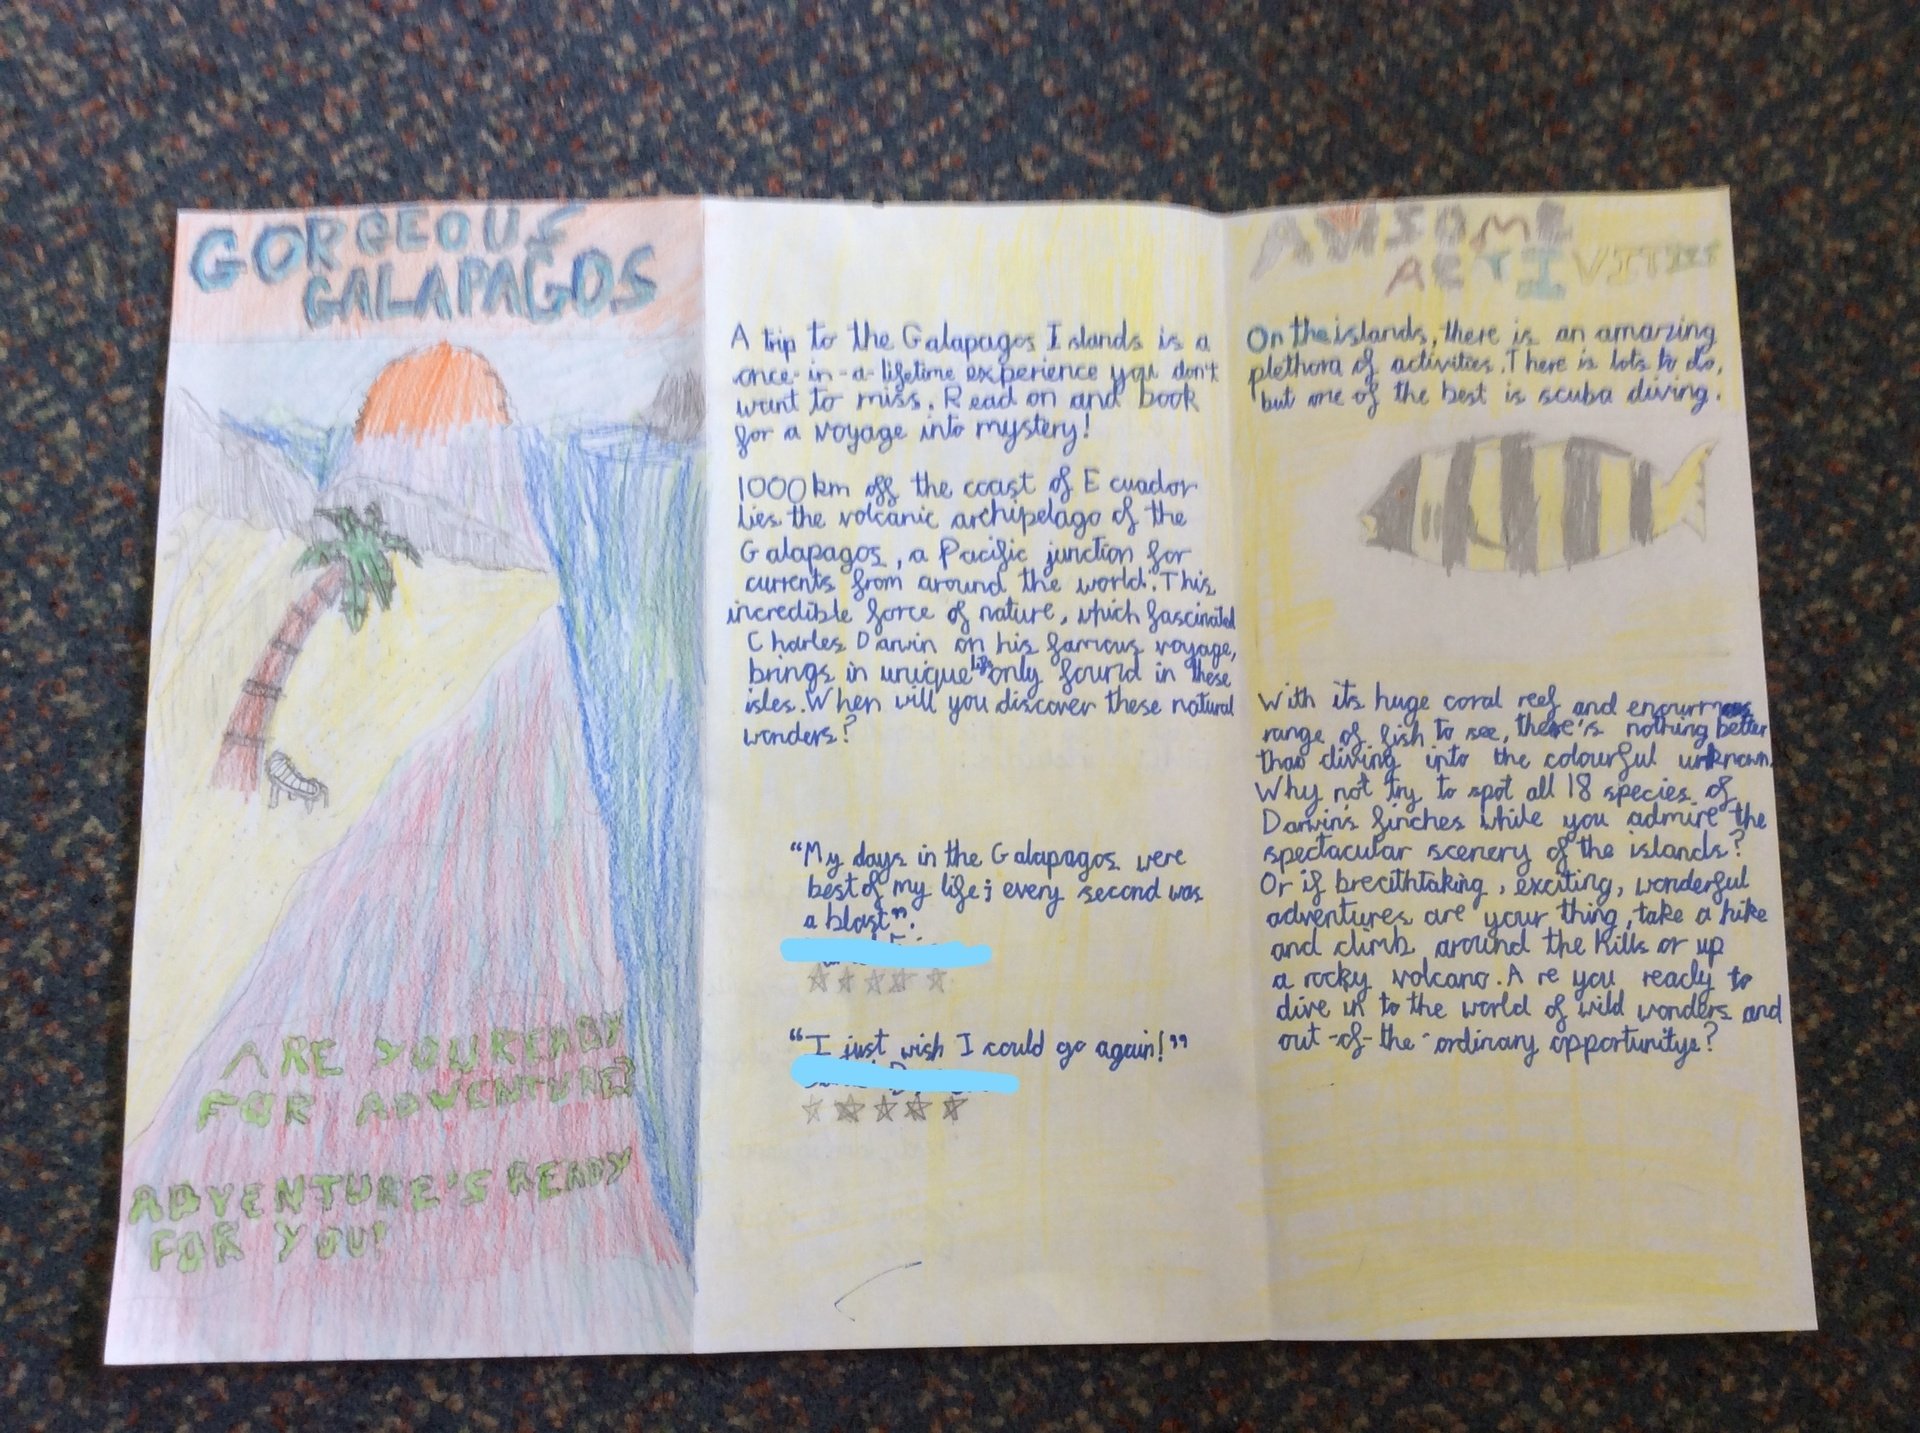 GORGEOUS
GALAPAGOS
ARE YOU READY
FOR ADVENTURE?
ADVENTURE'S READY
FOR YOU!
A trip to the Galapagos Islands is a
once-in-a-lifetime experience you don't
want to miss. Read on and book
for a voyage into mystery!
1000km off the coast of Ecuador
lies the volcanic archipelago of the
Galapagos, a Pacific junction for
currents from around the world. This
incredible force of nature, which fascinated
Charles Darwin on his famous voyage,
brings in unique life only found in these
isles. When will you discover these natural
wonders?
"My days in the Galapagos were
best of my life; every second was
a blast".
"I just wish I could go again!"
AWSOME
ACTIVITIES
On the islands, there is an amazing
plethora of activities. There is lots to do,
but one of the best is scuba diving.
With its huge coral reef and enourmous
range of fish to see, there's nothing better
than diving into the colourful unknown.
Why not try to spot all 18 species of
Darwin's finches while you admire the
spectacular scenery of the islands?
Or if breathtaking, exciting, wonderful
adventures are your thing, take a hike
and climb around the hills or up
a rocky volcano. Are you ready to
dive in to the world of wild wonders and
out-of-the-ordinary opportunitys?